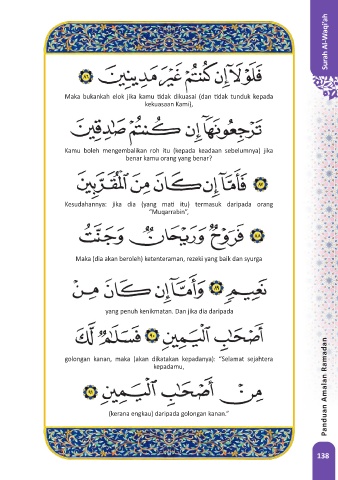 Surah Al-Waqi'ah
فَلَوْلَآ إِن كُنتُمْ غَيْرَ مَدِينِينَ ٨٦
Maka bukankah elok jika kamu tidak dikuasai (dan tidak tunduk kepada
kekuasaan Kami),
تَرْجِعُونَهَآ إِن كُنتُمْ صَٰدِقِينَ
Kamu boleh mengembalikan roh itu (kepada keadaan sebelumnya) jika
benar kamu orang yang benar?
٨٧ فَأَمَّآ إِن كَانَ مِنَ ٱلْمُقَرَّبِينَ
Kesudahannya: jika dia (yang mati itu) termasuk daripada orang
"Muqarrabin",
٨٨ فَرَوْحٌ وَرَيْحَانٌ وَجَنَّتُ
Maka (dia akan beroleh) ketenteraman, rezeki yang baik dan syurga
نَعِيمٍ ٨٩ وَأَمَّآ إِن كَانَ مِنْ
yang penuh kenikmatan. Dan jika dia daripada
أَصْحَٰبِ ٱلْيَمِينِ ٩٠ فَسَلَٰمٌ لَّكَ
golongan kanan, maka (akan dikatakan kepadanya): "Selamat sejahtera
kepadamu,
مِنْ أَصْحَٰبِ ٱلْيَمِينِ ٩١
(kerana engkau) daripada golongan kanan."
Panduan Amalan Ramadan
138